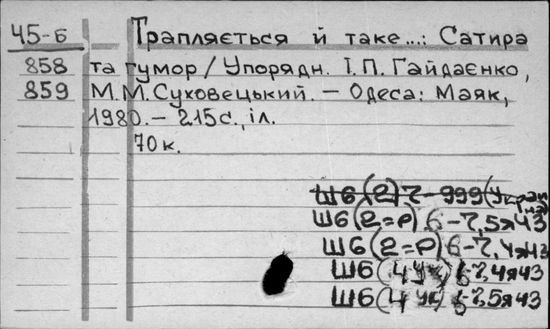 45-Б Трапляється й таке...: Сатира
858 та гумор / Упорядн. І.П. Гайдаєнко,
859 М.М. Суховецький. – Одеса: Маяк,
1980. – 215с., іл.
70к.
Ш6(2)7-999(Украї
Ш6(2=Р),6-7,5я43
Ш6(2=Р)6-7,4я43
Ш6(4Ук) 6-7,4я43
Ш6(4Ук) 6-7,5я43